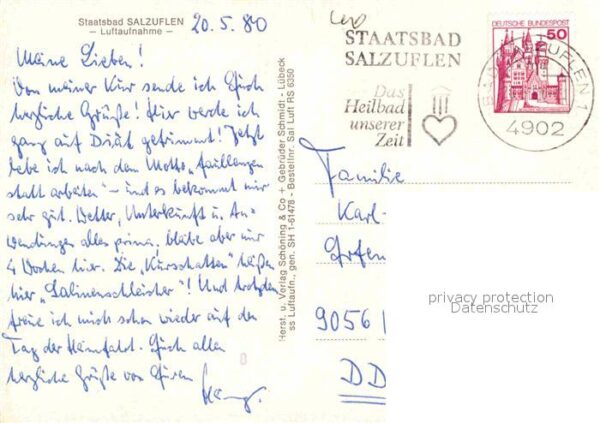 Staatsbad SALZUFLEN
– Luftaufnahme –
20.5.80
Meine Lieben!
Von meiner Kur sende ich Euch
herzliche Grüße! Hier werde ich
ganz auf Diät getrimmt! Jetzt
lebe ich nach dem Motto „faullenzen
statt arbeiten" – und es bekommt mir
sehr gut. Wetter, Unterkunft u. An-
wendungen alles prima, bleibe aber nur
4 Wochen hier. Die „Kurschatten" heißen
hier „Salinenschleicher"! Und trotzdem
freue ich mich schon wieder auf den
Tag der Heimfahrt. Euch allen
herzliche Grüße von Eurem
Herst. u. Verlag Schöning & Co + Gebrüder Schmidt - Lübeck
ss Luftaufn., gen. SH 1-61478 - Bestellnr. Sal Luft RS 6350
STAATSBAD
SALZUFLEN
Das
Heilbad
unserer
Zeit
DEUTSCHE BUNDESPOST
50
BAD SALZUFLEN 1
4902
Familie
Karl-
9056
DD
privacy protection
Datenschutz